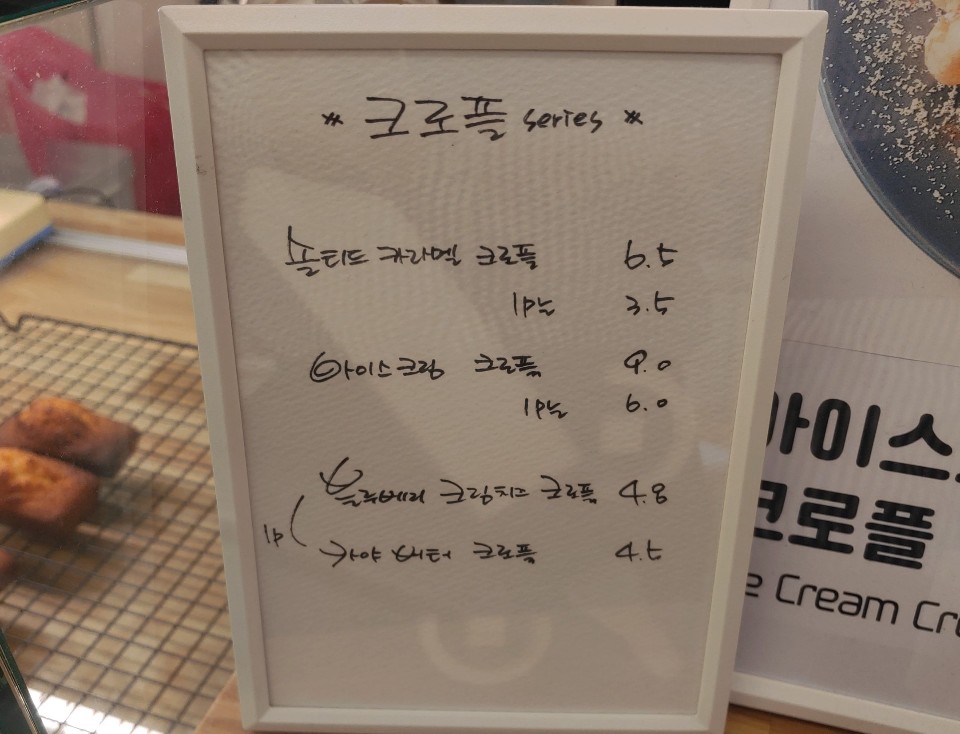 * 크로플 series *
솔티드 카라멜 크로플 6.5
1P는 3.5
아이스크림 크로플 9.0
1P는 6.0
블루베리 크림치즈 크로플 4.8
1P
카야 버터 크로플 4.5
아이스
크로플
e Cream Cr